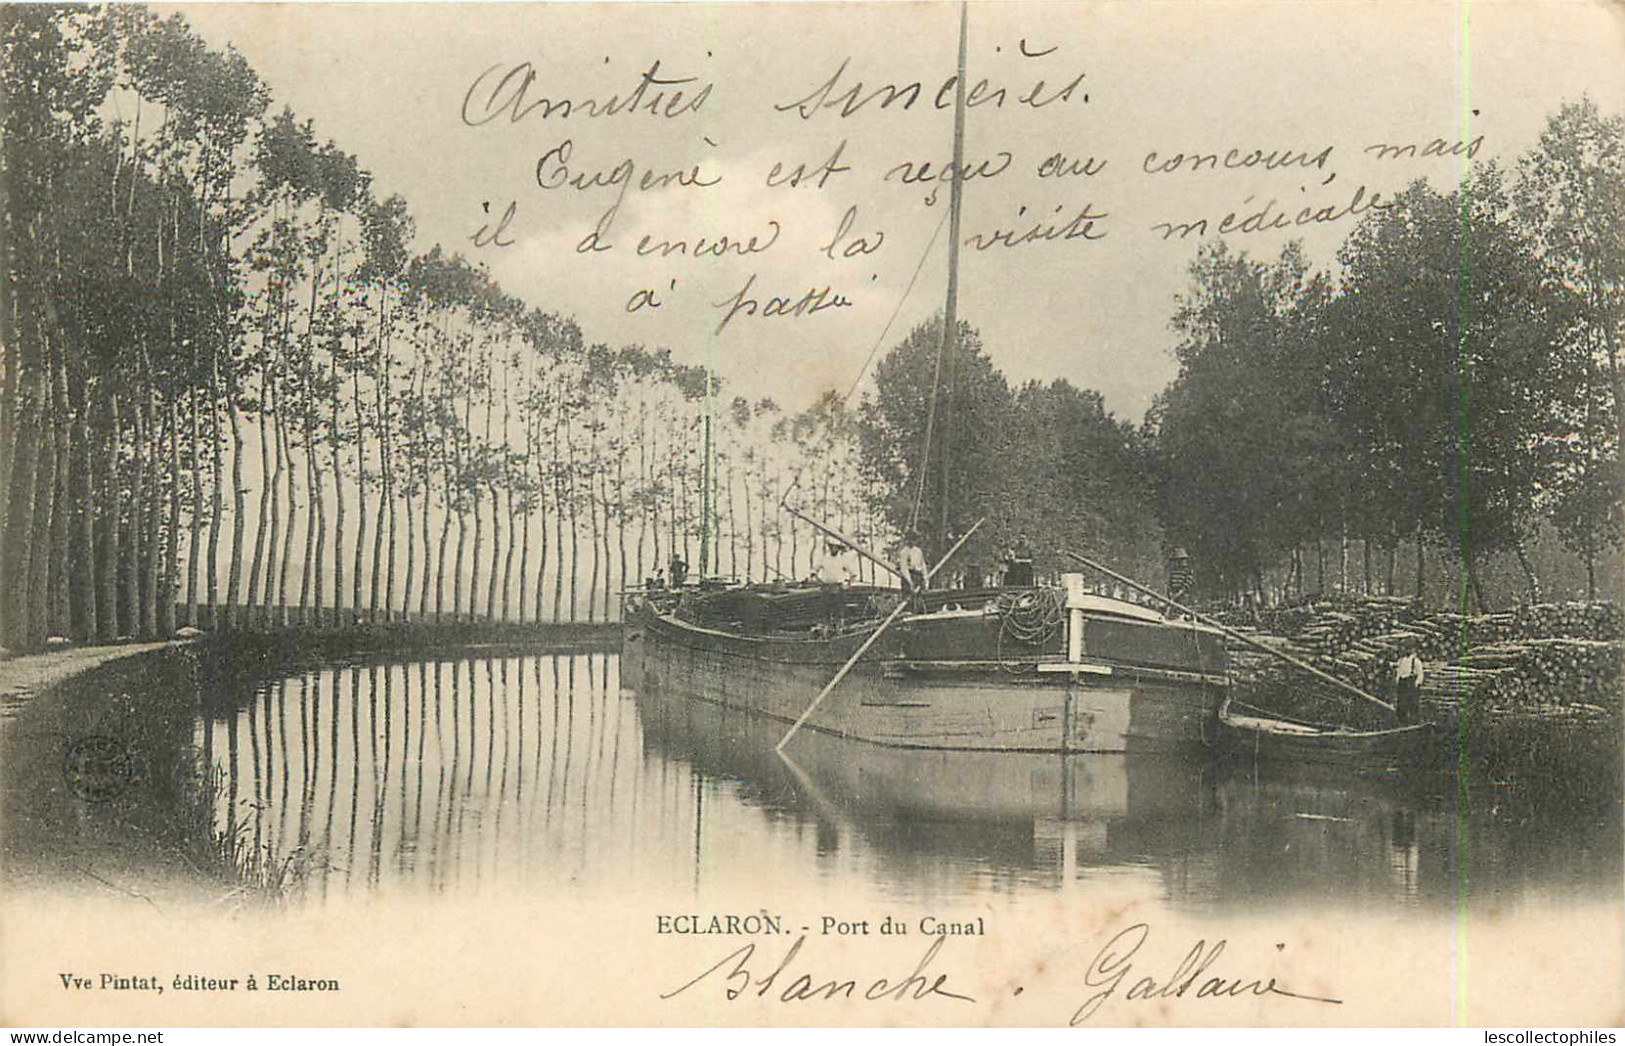 Amitiés sincères.
Eugenè est reçu au concours, mais
il a encore la visite médicale
à passé
ECLARON. - Port du Canal
Blanche.
Vve Pintat, éditeur à Eclaron
lescollectophiles